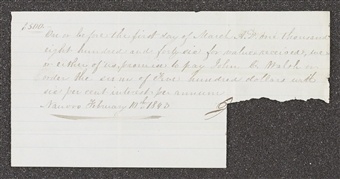 $500.
On or before the first day of March A.D. one thousand
eight hundred and forty six for value received, we
or either of us promise to pay John C. Walsh or
order the sum of Five hundred dollars with
six per cent interest per annum
Nauvoo February 10th 1843